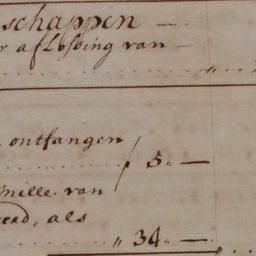 schappen —
r aflossing van —
ontfangen
5 " —
mille van
eerd, als
" 34 " —